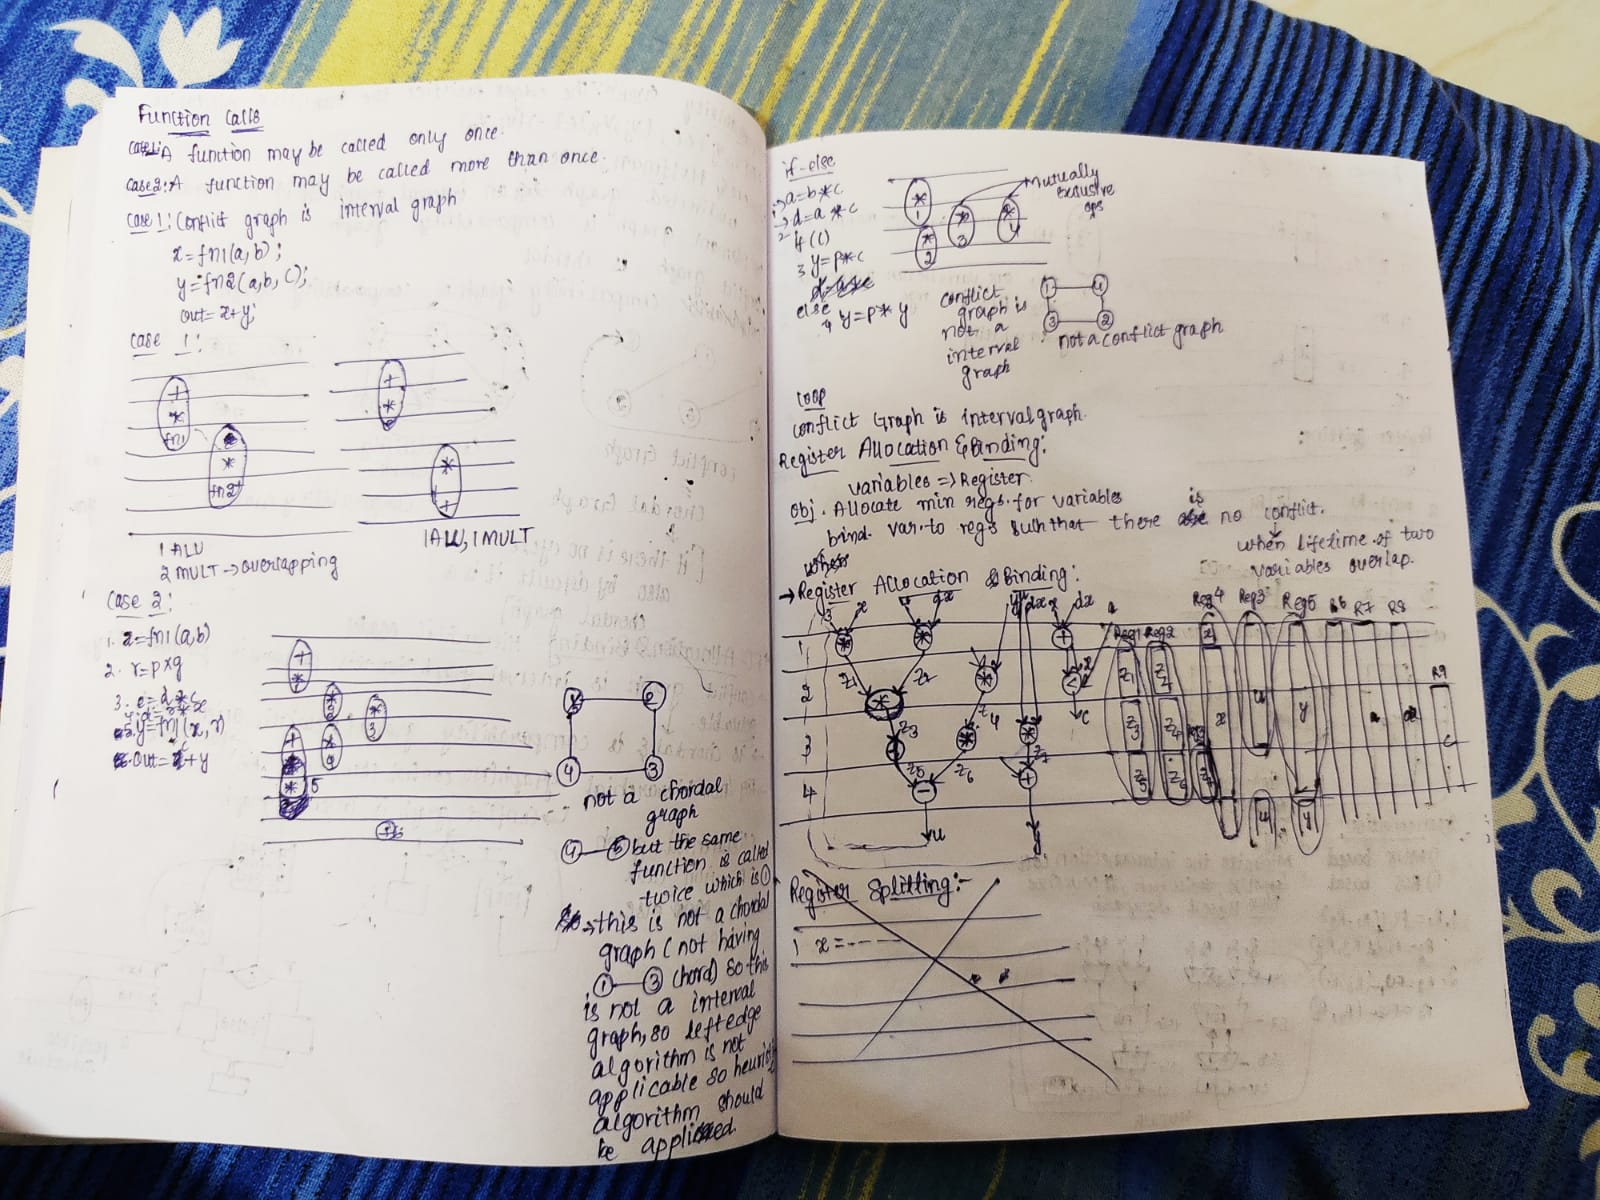 Function Calls
Case1:A function may be called only once.
Case2:A function may be called more than once
Case 1: Conflict graph is interval graph
x=fn1(a,b);
y=fn2(a,b,c);
out=x+y;
Case 1:
+
*
fn1
*
fn2
+
*
*
+
1 ALU
2 MULT → overlapping
1ALU, 1MULT
Case 2:
1. x=fn1(a,b)
2. r=p*q
+
*
*
3
*
5
1
2
4
3
not a chordal
graph
but the same
function is called
twice which is ①
→this is not a chordal
graph (not having
①—③ chord) so this
is not a interval
graph, so leftedge
algorithm is not
applicable so heuristic
algorithm should
be applied.
if-else
1→a=b*c
2→d=a*c
if (c)
3 y=p*c
else
4 y=p*y
*
1
*
2
*
3
*
4
Mutually
exclusive
ops
conflict
graph is
not a
interval
graph
1
4
3
2
not a conflict graph
Loop
conflict Graph is interval graph.
Register Allocation & Binding:
variables => Register
Obj. Allocate min regs. for variables
bind. var. to regs such that there is no conflict.
when lifetime of two
variables overlap.
→Register Allocation & Binding:
3
x
dx
x
dx
a
1
2
3
4
*
*
*
*
*
*
+
<
-
-
+
z1
z2
z3
z4
z5
z6
z7
c
u
y
Reg1
Reg2
Reg4
Reg3
Reg5
R6
R7
R8
R9
z1
z3
z5
z2
z4
z6
x
u
y
u
y
c
Register Splitting:-
1 x=-----